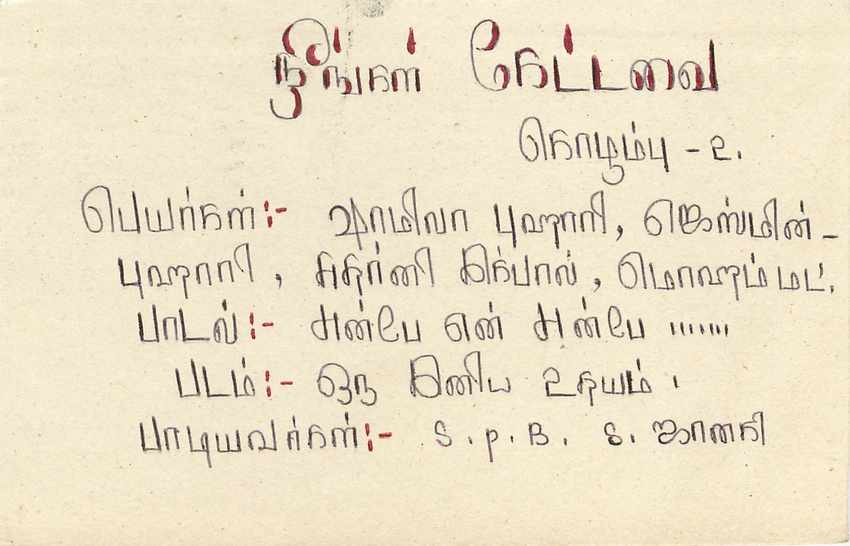 நீங்கள் கேட்டவை
கொழும்பு - 2.
பெயர்கள்:- ஷாமிலா புஹாரி, ஜெஸ்மின் -
புஹாரி, இக்பால், மொஹம்மட்.
பாடல்:- அன்பே என் அன்பே .......
படம்:- ஒரு இனிய உதயம்.
பாடியவர்கள்:- S.P.B. S. ஜானகி